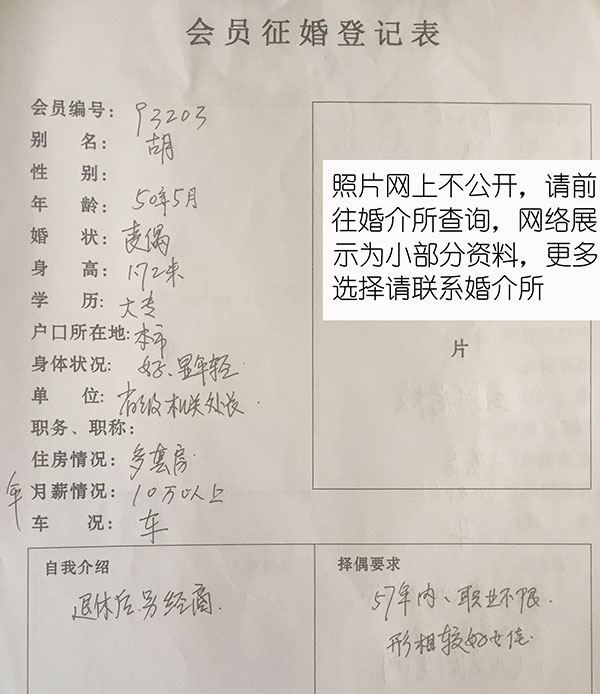 会员征婚登记表
会员编号：93203
别　名：胡
性　别：
年　龄：50年5月
婚　状：丧偶
身　高：1.72米
学　历：大专
户口所在地：本市
身体状况：好、显年轻
单　位：省级机关处长
职务、职称：
住房情况：多套房
年月薪情况：10万以上
车　况：车
照片网上不公开，请前
往婚介所查询，网络展
示为小部分资料，更多
选择请联系婚介所
片
自我介绍
退休后另经商
择偶要求
57年内、职业不限
形相较好女佳